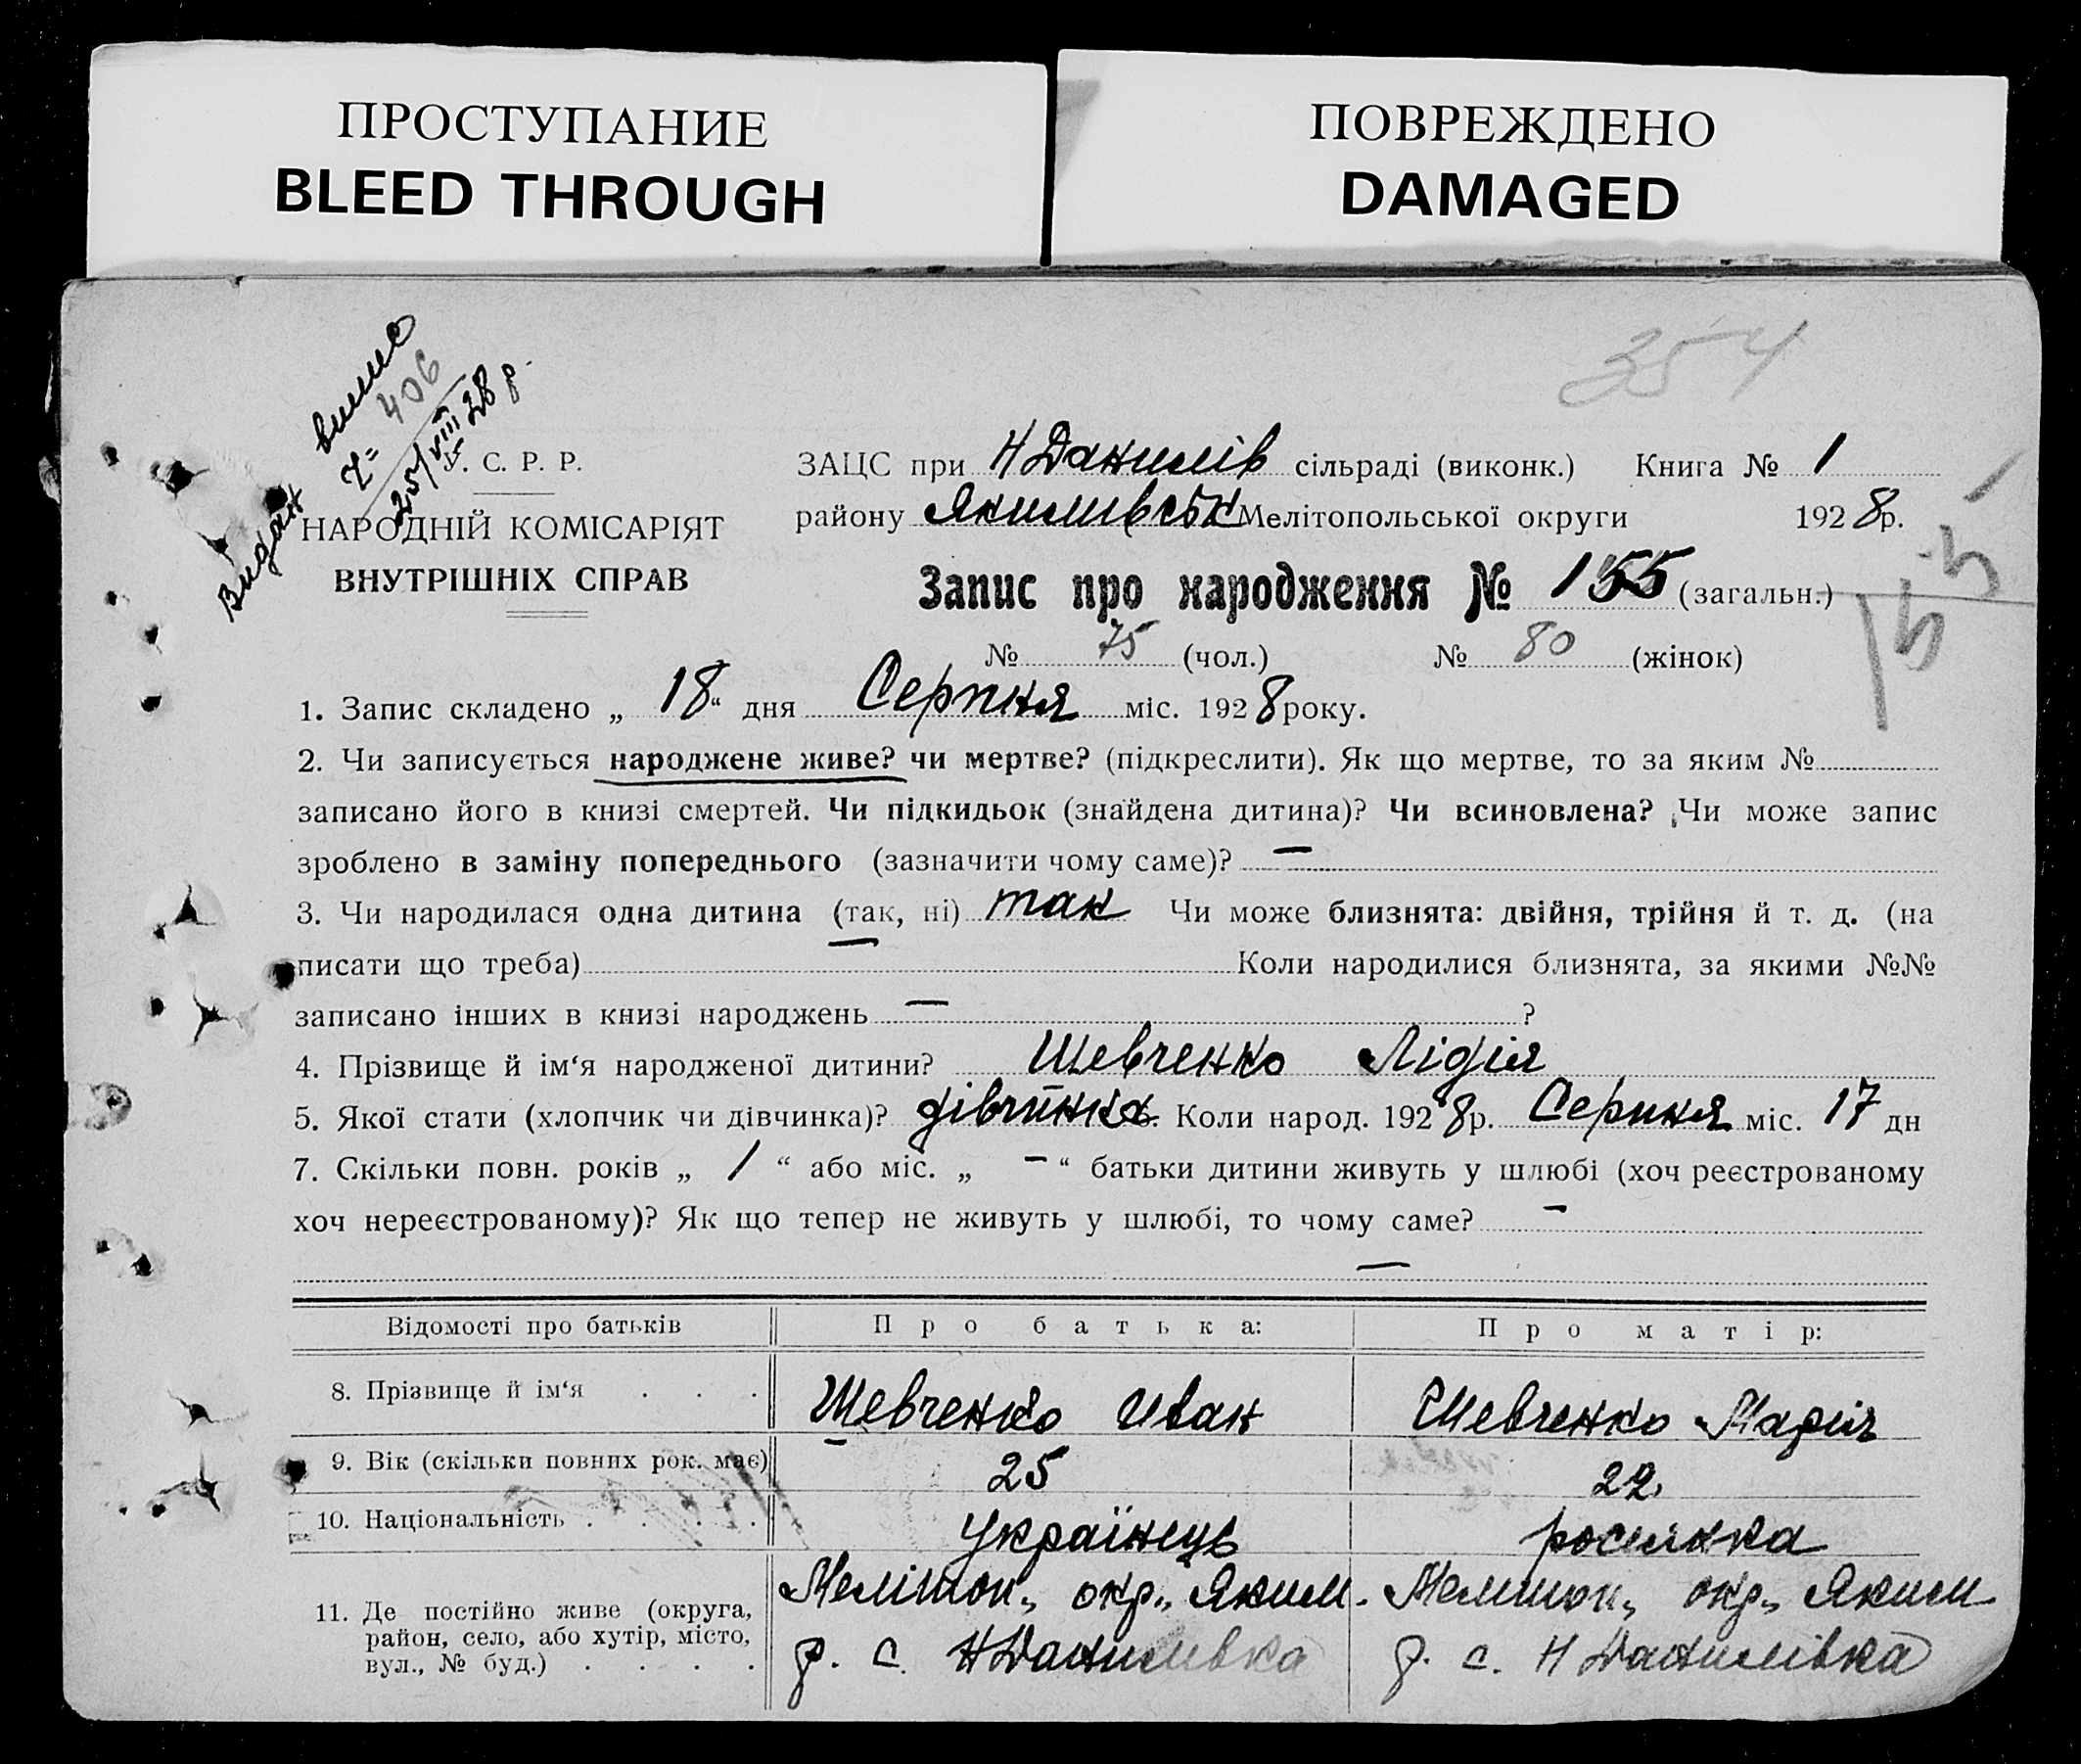 ПРОСТУПАНИЕ
BLEED THROUGH
ПОВРЕЖДЕНО
DAMAGED
354
Видан
випис
406
25/VIII 28 р.
У. С. Р. Р.
НАРОДНІЙ КОМІСАРІЯТ
ВНУТРІШНІХ СПРАВ
ЗАЦС при Н Данилів сільраді (виконк.) Книга № 1
району Якимівськ Мелітопольської округи 1928 р.
Запис про народження № 155 (загальн.)
155
№ 75 (чол.) № 80 (жінок)
1. Запис складено „ 18 “ дня Серпня міс. 1928 року.
2. Чи записується народжене живе? чи мертве? (підкреслити). Як що мертве, то за яким №
записано його в книзі смертей. Чи підкидьок (знайдена дитина)? Чи всиновлена? Чи може запис
зроблено в заміну попереднього (зазначити чому саме)? —
3. Чи народилася одна дитина (так, ні) так Чи може близнята: двійня, трійня й т. д. (на
писати що треба) Коли народилися близнята, за якими №№
записано інших в книзі народжень — ?
4. Прізвище й ім‘я народженої дитини? Шевченко Лідія
5. Якої стати (хлопчик чи дівчинка)? дівчинка 6. Коли народ. 1928 р. Серпня міс. 17 дн
7. Скільки повн. років „ 1 “ або міс. „ — “ батьки дитини живуть у шлюбі (хоч реєстрованому
хоч нереєстрованому)? Як що тепер не живуть у шлюбі, то чому саме? —
—
Відомості про батьків Про батька: Про матір:
8. Прізвище й ім‘я . . . Шевченко Иван Шевченко Марія
9. Вік (скільки повних рок. має) 25 22
10. Національність . . . . Українець росиянка
11. Де постійно живе (округа, район, село, або хутір, місто, вул., № буд.) . . . .
Меліток., окр., Яким. Мелиток., окр., Яким
р. с. Н Данилівка р. с. Н Данилівка